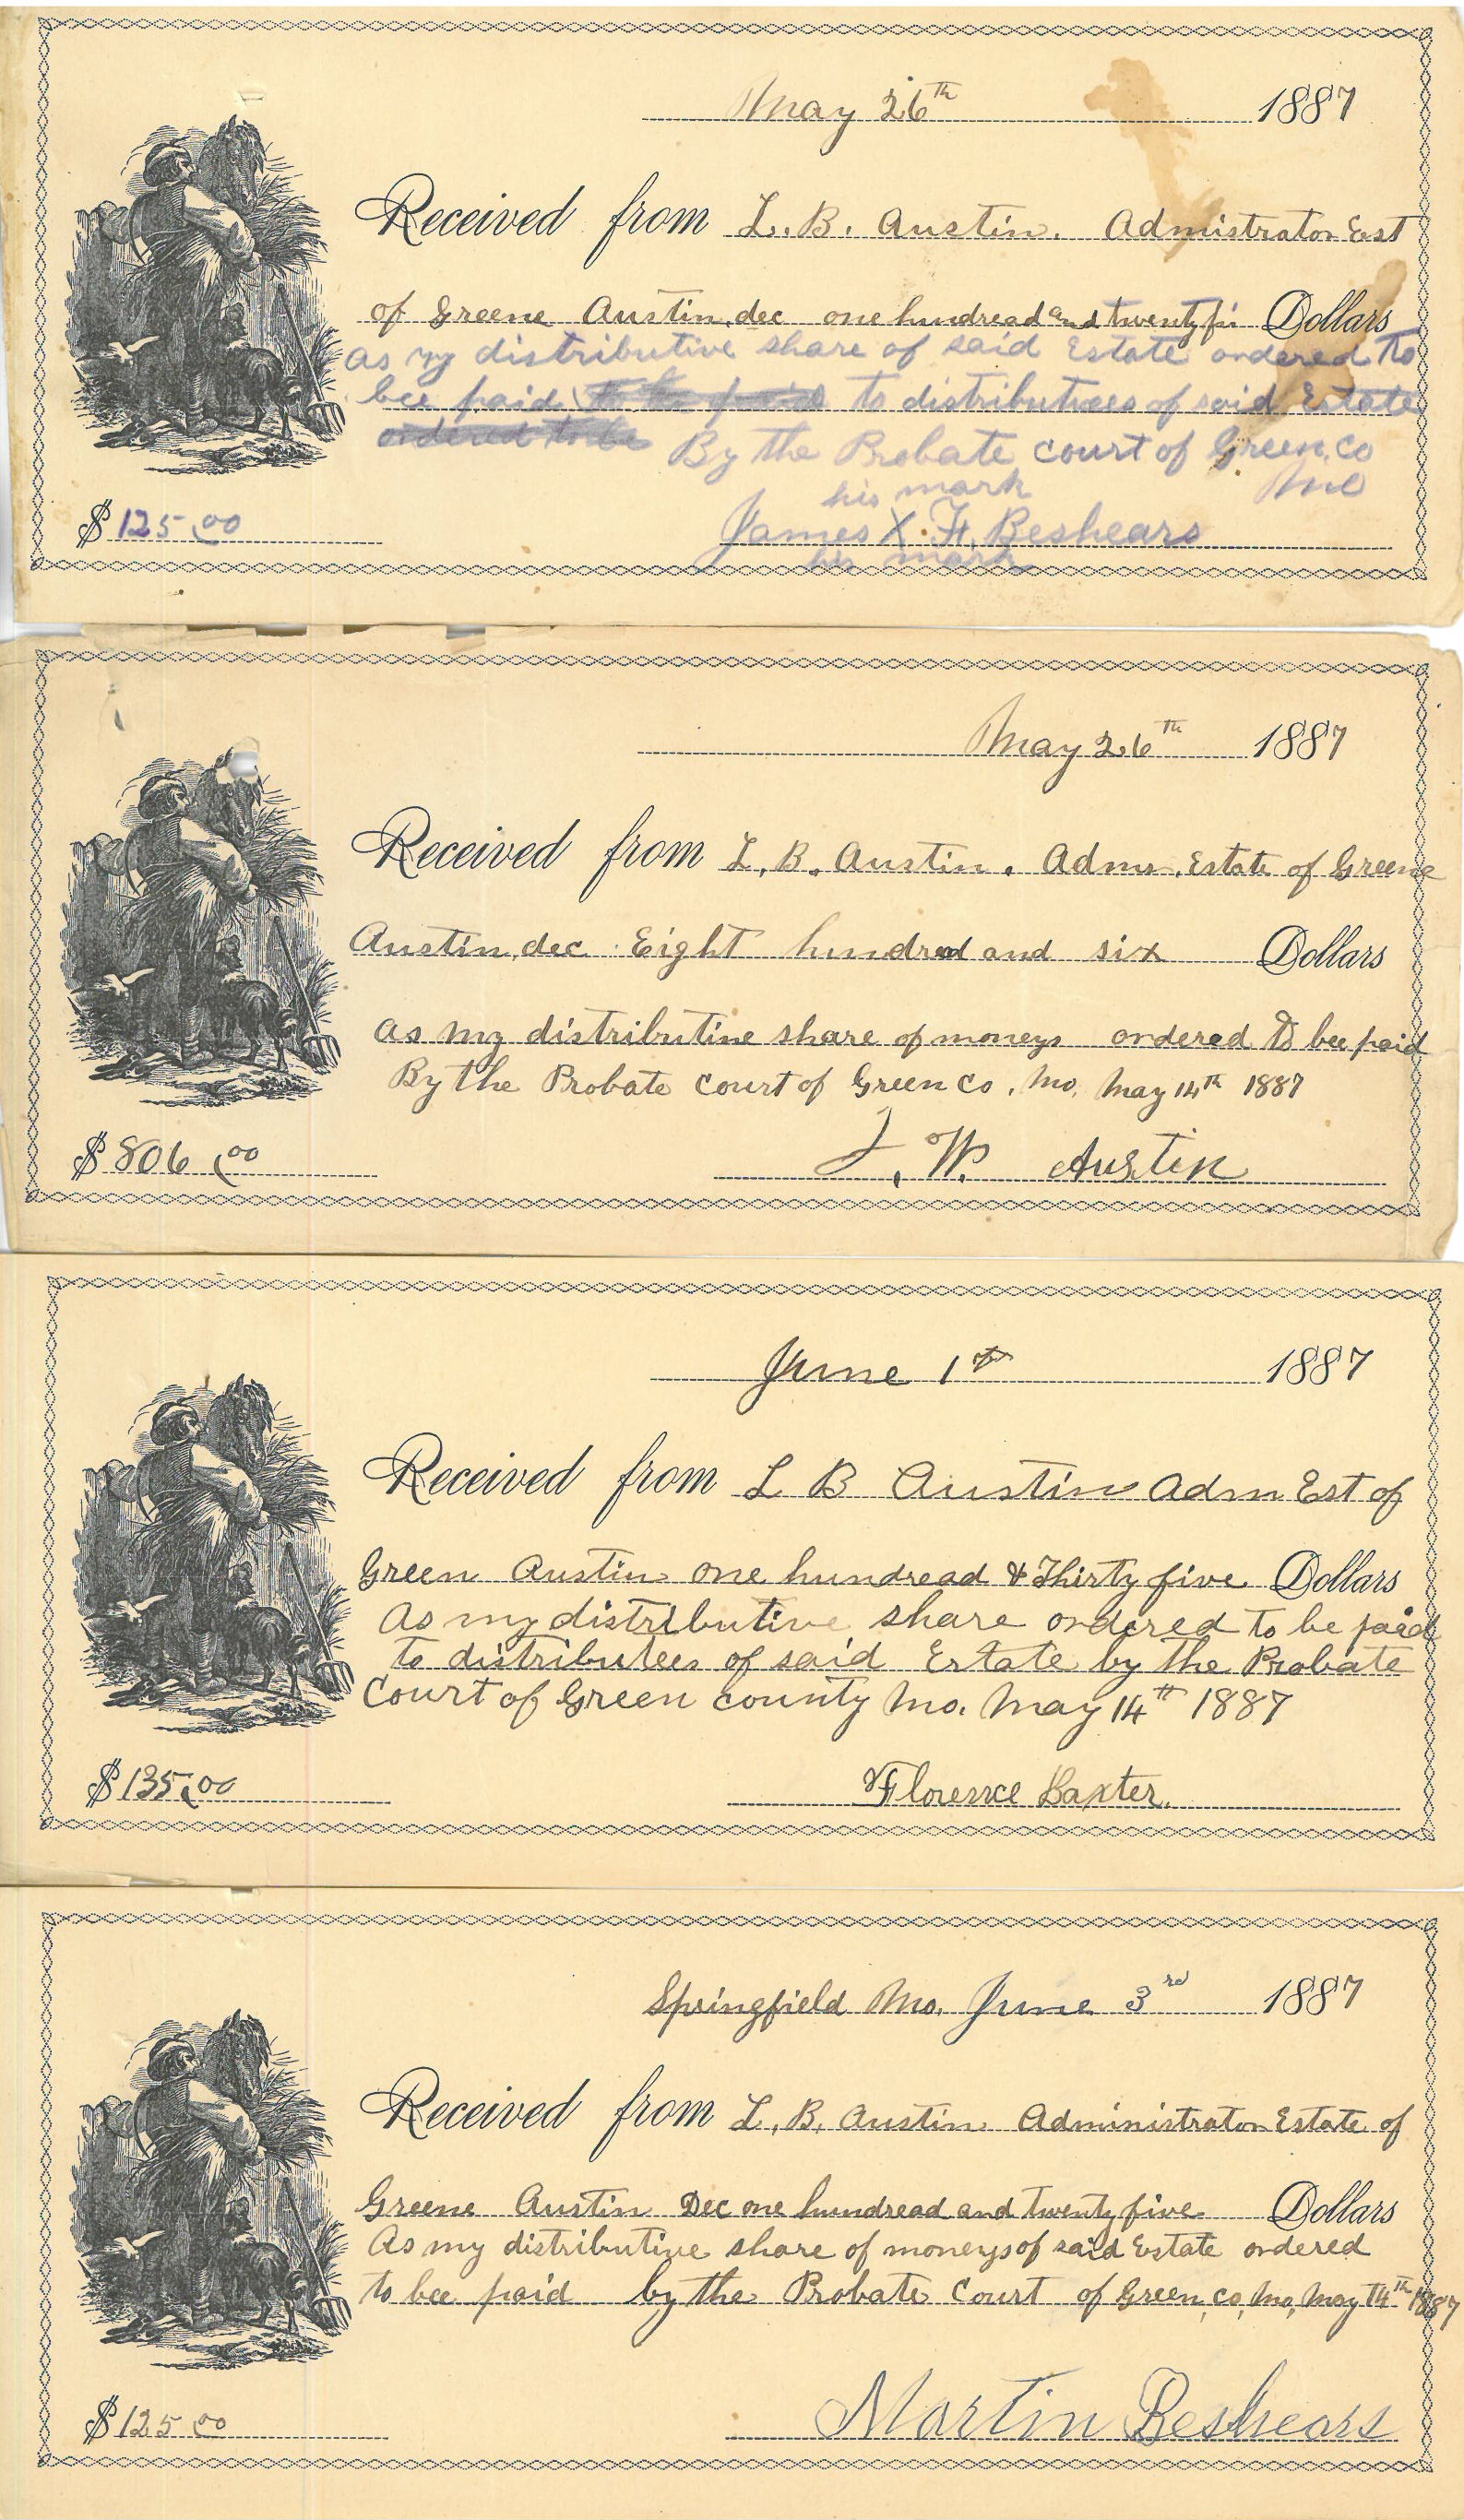 May 26th 1887
Received from L. B. Austin. Admistrator Est
of Greene Austin, dec one hundread and twenty fiv Dollars
as my distributive share of said Estate ordered to
bee paid to be paid to distributees of said Estate
ordered to be By the Probate court of Green, Co
his mark Mo
$125.00 James X. F. Beshears
his mark
May 26th 1887
Received from L. B. Austin. Admr. Estate of Greene
Austin, dec Eight hundred and six Dollars
as my distributive share of moneys ordered to bee paid
By the Probate court of Green Co, Mo, May 14th 1887
$806.00 L. W. Austin
June 1st 1887
Received from L B Austin Adm Est of
Green Austin one hundread & Thirty five Dollars
As my distributive share ordered to be paid
to distributees of said Estate by the Probate
Court of Green county Mo. May 14th 1887
$135.00 Florence Baxter.
Springfield Mo. June 3rd 1887
Received from L. B. Austin Administrator Estate of
Greene Austin Dec one hundread and twenty five Dollars
As my distributive share of moneys of said Estate ordered
to bee paid by the Probate Court of Green, Co, Mo, May 14th 1887
$125.00 Martin Beshears